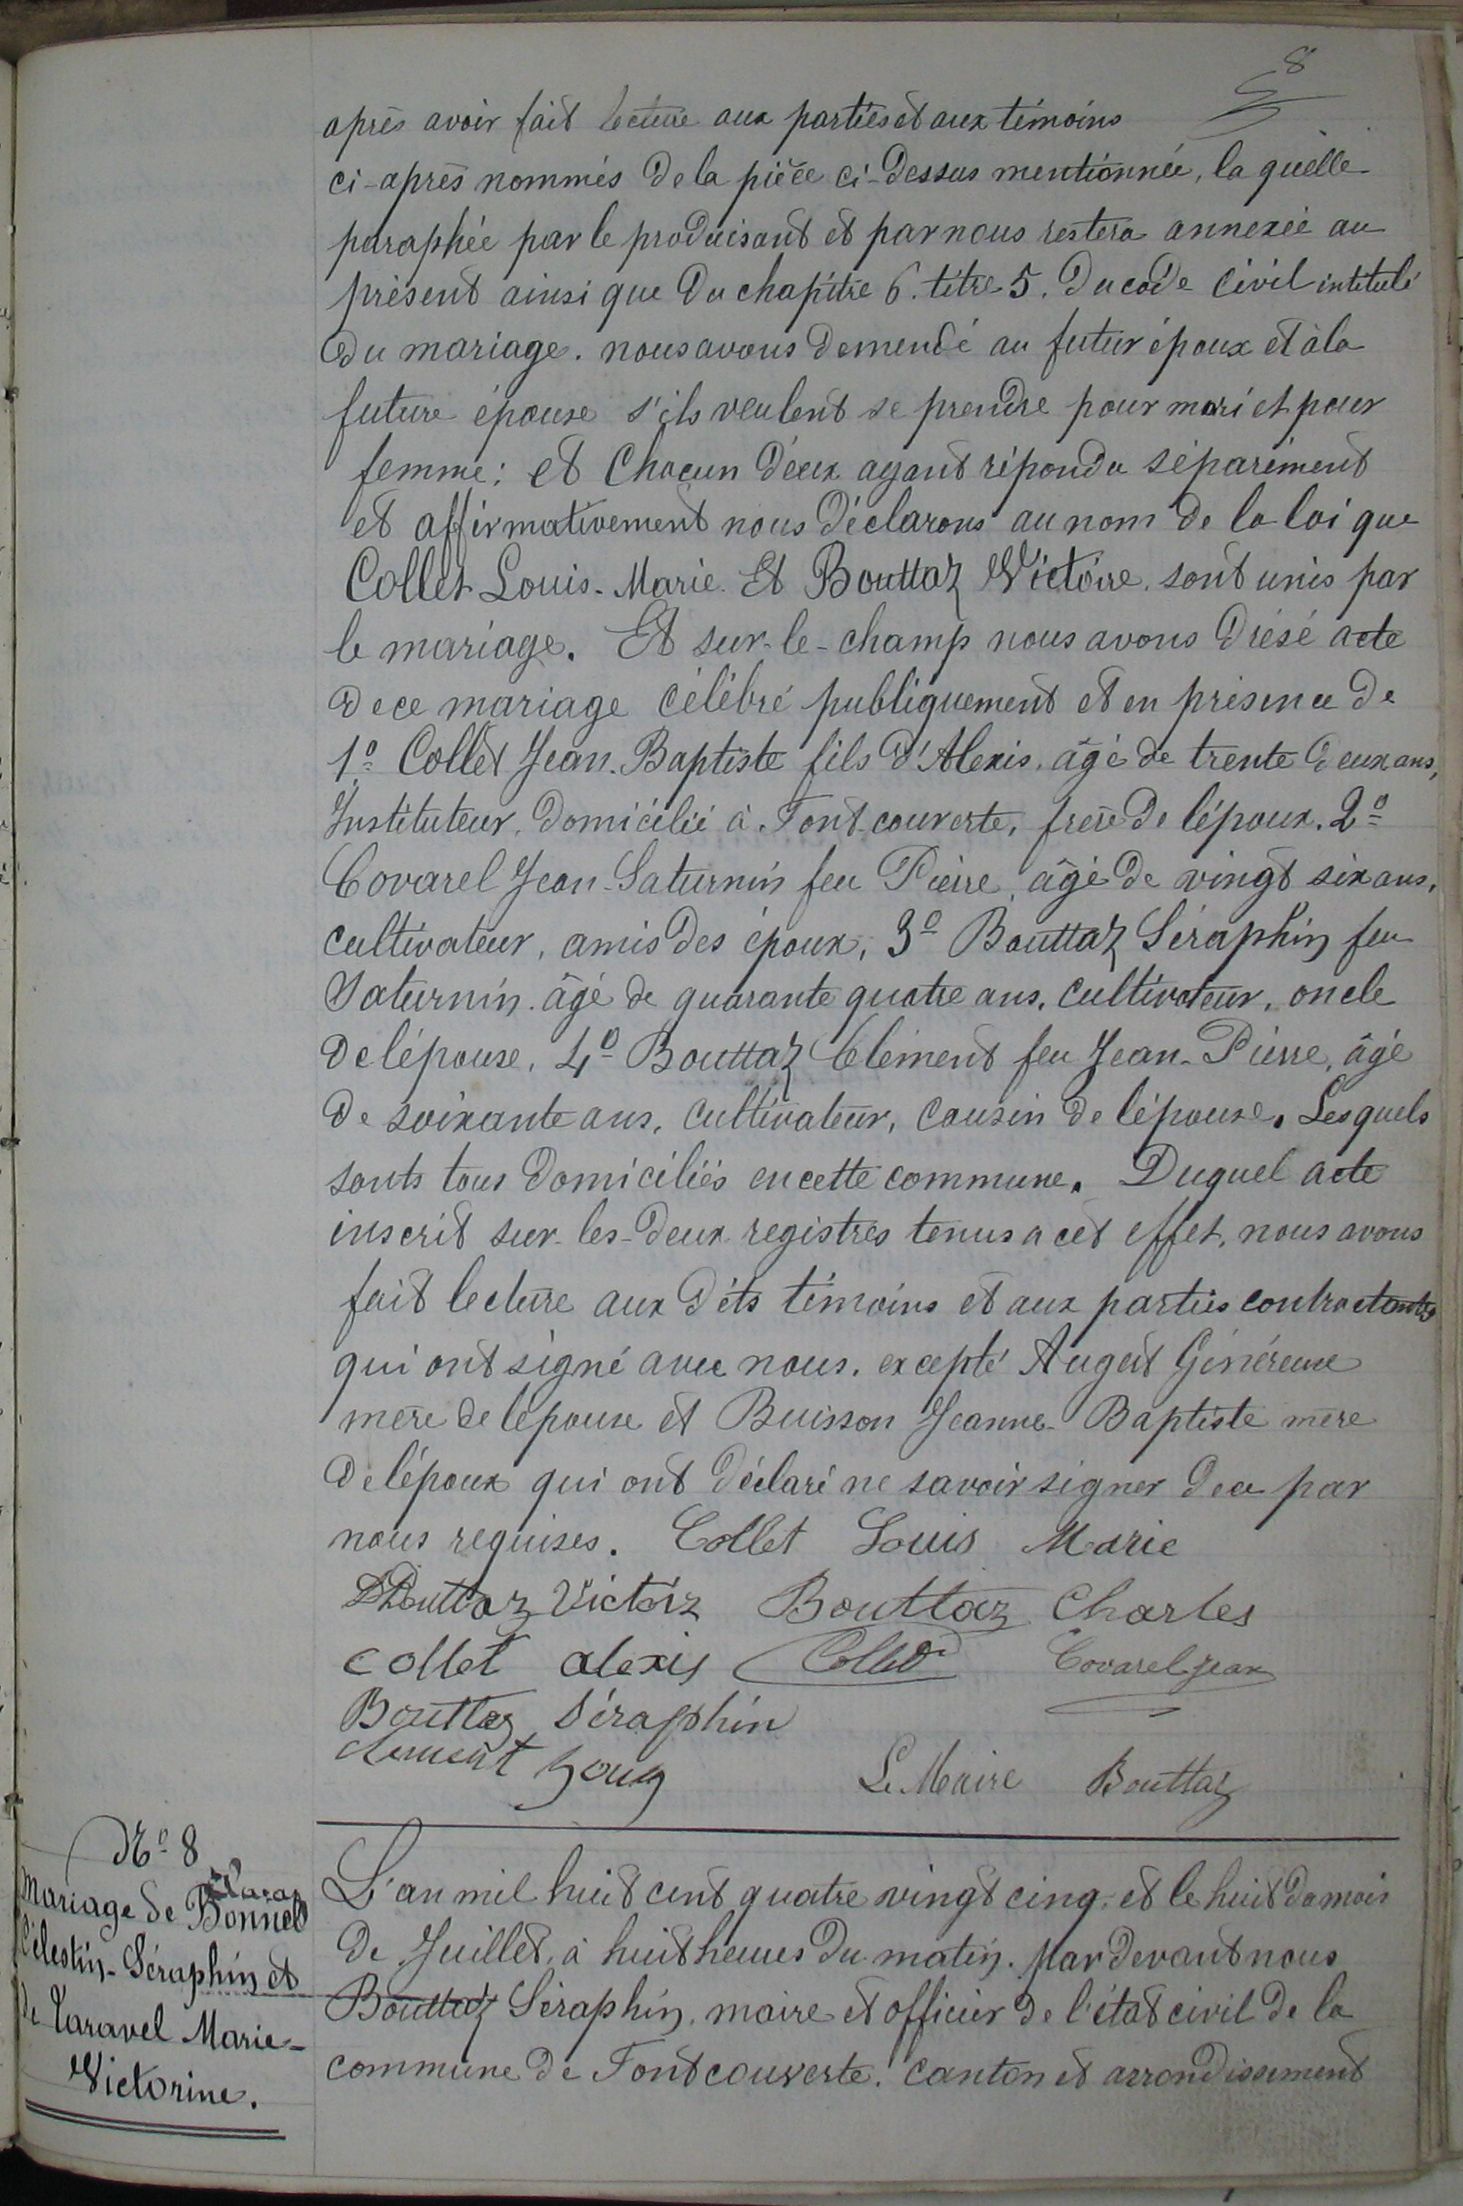 8
après avoir fait lecture aux parties et aux témoins
ci-après nommés de la pièce ci-dessus mentionnée, la quelle
paraphée par le produisant et par nous restera annexée au
présent ainsi que du chapitre 6. titre 5. du code civil intitulé
du mariage. nous avons demendé au futur époux et à la
future épouse s'ils veulent se prendre pour mari et pour
femme: et chacun d'eux ayant répondu séparément
et affirmativement nous déclarons au nom de la loi que
Collet Louis-Marie Et Bouttaz Victoire. sont unis par
le mariage. Et sur-le-champ nous avons drésé acte
de ce mariage célébré publiquement et en présence de
1º Collet Jean-Baptiste fils d'Alexis, âgé de trente deux ans,
Instituteur, domicilié à Fontcouverte, frère de l'époux. 2º
Covarel Jean-Saturnin feu Pierre, âgé de vingt six ans,
cultivateur, amis des époux, 3º Bouttaz Séraphin feu
Saturnin. âgé de quarante quatre ans, cultivateur, oncle
de l'épouse, 4º Bouttaz Clément feu Jean-Pierre, âgé
de soixante ans, cultivateur, cousin de l'épouse. Lesquels
sonts tous domiciliés en cette commune. Duquel acte
inscrit sur les deux registres tenus a cet effet, nous avons
fait lecture aux dits témoins et aux parties contractantes
qui ont signé avec nous. excepté Augert Généreuse
mère de l'épouse et Buisson Jeanne-Baptiste mère
de l'époux qui ont déclaré ne savoir signer de ce par
nous requises. Collet Louis Marie
Bouttaz Victoiz Bouttaz Charles
Collet alexis Collet Covarel Jean
Bouttaz Séraphin
Clement
Le Maire Bouttaz
Nº 8
Mariage de Bonnel
Célestin-Séraphin et
de Taravel Marie-
Victorine.
L'an mil huit cent quatre vingt cinq, et le huit du mois
de Juillet, à huit heures du matin. Par devant nous
Bouttaz Séraphin, maire et officier de l'état civil de la
commune de Fontcouverte. canton et arrondissement